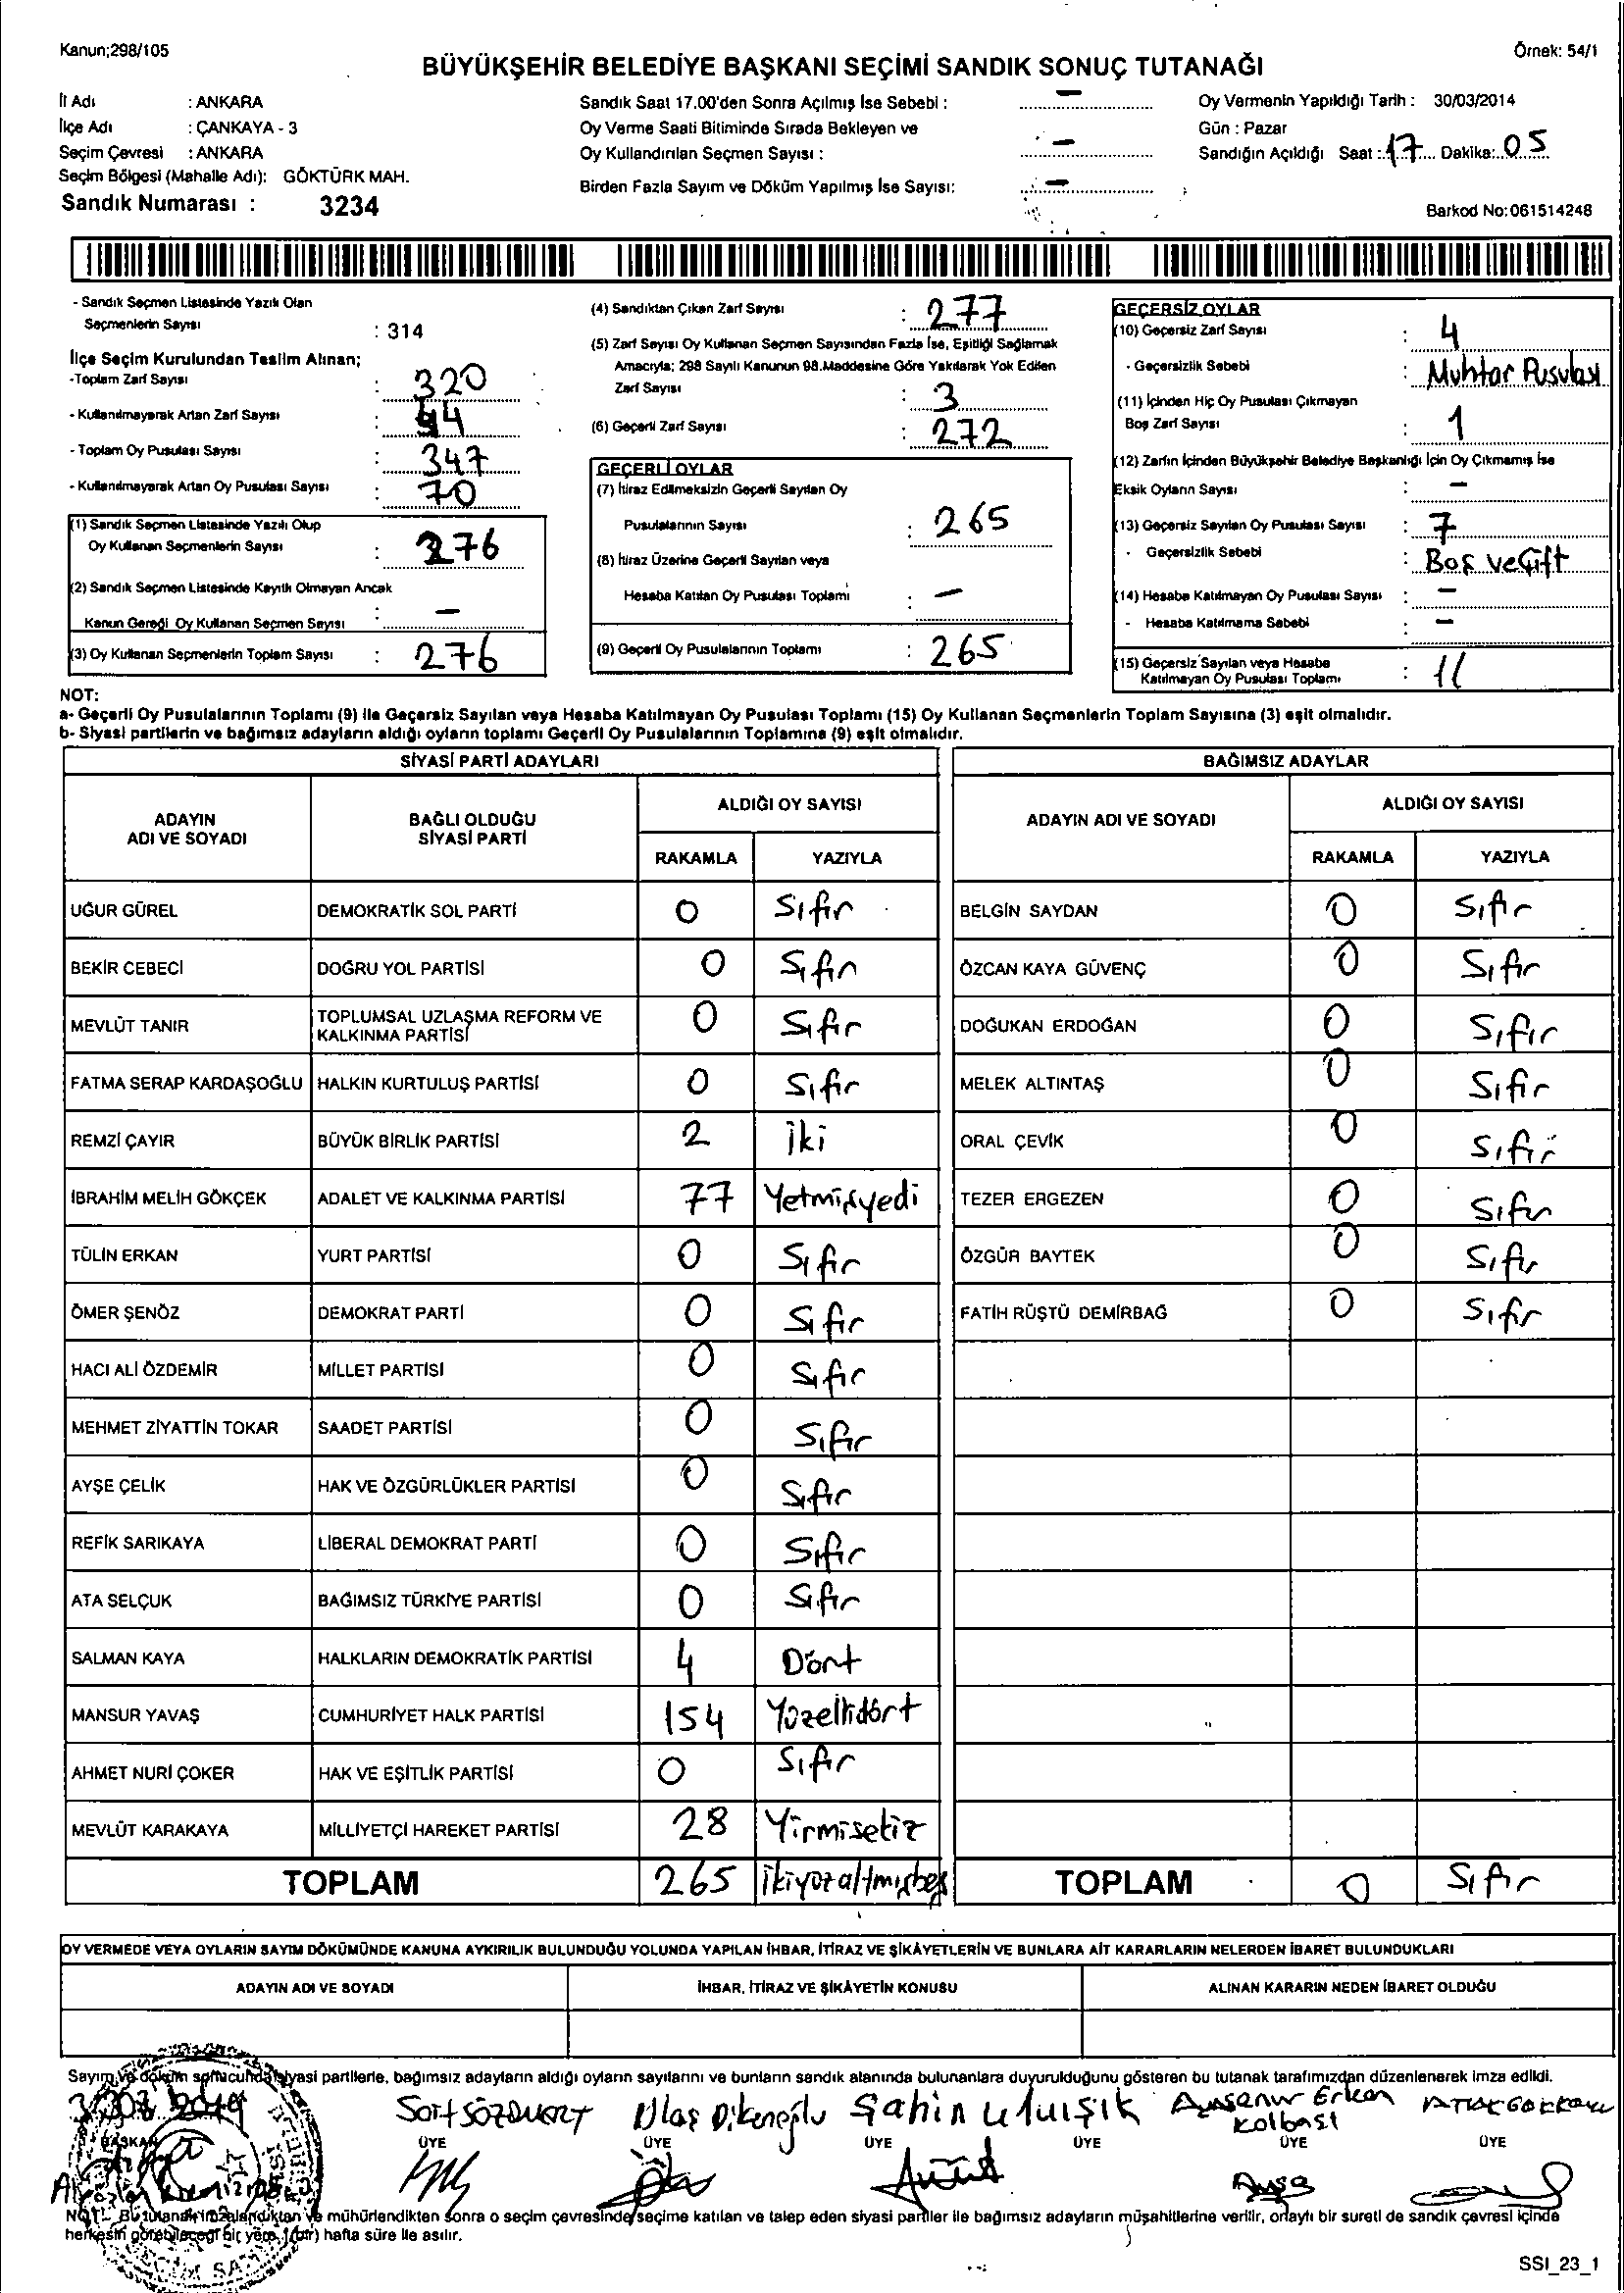 Kanun;298/105
Örnek: 54/1
BÜYÜKŞEHİR BELEDİYE BAŞKANI SEÇİMİ SANDIK SONUÇ TUTANAĞI
İl Adı : ANKARA
İlçe Adı : ÇANKAYA - 3
Seçim Çevresi : ANKARA
Seçim Bölgesi (Mahalle Adı): GÖKTÜRK MAH.
Sandık Numarası : 3234
Sandık Saat 17.00'den Sonra Açılmış İse Sebebi : -
Oy Verme Saati Bitiminde Sırada Bekleyen ve
Oy Kullandırılan Seçmen Sayısı : -
Birden Fazla Sayım ve Döküm Yapılmış İse Sayısı: -
Oy Vermenin Yapıldığı Tarih : 30/03/2014
Gün : Pazar
Sandığın Açıldığı Saat : 17 Dakika: 05
Barkod No:061514248
- Sandık Seçmen Listesinde Yazılı Olan
Seçmenlerin Sayısı : 314
İlçe Seçim Kurulundan Teslim Alınan;
-Toplam Zarf Sayısı : 320
- Kullanılmayarak Artan Zarf Sayısı : 44
- Toplam Oy Pusulası Sayısı : 347
- Kullanılmayarak Artan Oy Pusulası Sayısı : 70
(1) Sandık Seçmen Listesinde Yazılı Olup
Oy Kullanan Seçmenlerin Sayısı : 276
(2) Sandık Seçmen Listesinde Kayıtlı Olmayan Ancak
Kanun Gereği Oy Kullanan Seçmen Sayısı : -
(3) Oy Kullanan Seçmenlerin Toplam Sayısı : 276
(4) Sandıktan Çıkan Zarf Sayısı : 277
(5) Zarf Sayısı Oy Kullanan Seçmen Sayısından Fazla İse, Eşitliği Sağlamak
Amacıyla; 298 Sayılı Kanunun 98.Maddesine Göre Yakılarak Yok Edilen
Zarf Sayısı : 3
(6) Geçerli Zarf Sayısı : 272
GEÇERLİ OYLAR
(7) İtiraz Edilmeksizin Geçerli Sayılan Oy
Pusulalarının Sayısı : 265
(8) İtiraz Üzerine Geçerli Sayılan veya
Hesaba Katılan Oy Pusulası Toplamı : -
(9) Geçerli Oy Pusulalarının Toplamı : 265
GEÇERSİZ OYLAR
(10) Geçersiz Zarf Sayısı : 4
- Geçersizlik Sebebi : Muhtar Pusulası
(11) İçinden Hiç Oy Pusulası Çıkmayan
Boş Zarf Sayısı : 1
(12) Zarfın İçinden Büyükşehir Belediye Başkanlığı İçin Oy Çıkmamış İse
Eksik Oyların Sayısı : -
(13) Geçersiz Sayılan Oy Pusulası Sayısı : 7
- Geçersizlik Sebebi : Boş ve Çift
(14) Hesaba Katılmayan Oy Pusulası Sayısı : -
- Hesaba Katılmama Sebebi : -
(15) Geçersiz Sayılan veya Hesaba
Katılmayan Oy Pusulası Toplamı : 11
NOT:
a- Geçerli Oy Pusulalarının Toplamı (9) ile Geçersiz Sayılan veya Hesaba Katılmayan Oy Pusulası Toplamı (15) Oy Kullanan Seçmenlerin Toplam Sayısına (3) eşit olmalıdır.
b- Siyasi partilerin ve bağımsız adayların aldığı oyların toplamı Geçerli Oy Pusulalarının Toplamına (9) eşit olmalıdır.
SİYASİ PARTİ ADAYLARI
ADAYIN ADI VE SOYADI BAĞLI OLDUĞU SİYASİ PARTİ ALDIĞI OY SAYISI
RAKAMLA YAZIYLA
UĞUR GÜREL DEMOKRATİK SOL PARTİ 0 Sıfır
BEKİR CEBECİ DOĞRU YOL PARTİSİ 0 Sıfır
MEVLÜT TANIR TOPLUMSAL UZLAŞMA REFORM VE KALKINMA PARTİSİ 0 Sıfır
FATMA SERAP KARDAŞOĞLU HALKIN KURTULUŞ PARTİSİ 0 Sıfır
REMZİ ÇAYIR BÜYÜK BİRLİK PARTİSİ 2 iki
İBRAHİM MELİH GÖKÇEK ADALET VE KALKINMA PARTİSİ 77 Yetmişyedi
TÜLİN ERKAN YURT PARTİSİ 0 Sıfır
ÖMER ŞENÖZ DEMOKRAT PARTİ 0 Sıfır
HACI ALİ ÖZDEMİR MİLLET PARTİSİ 0 Sıfır
MEHMET ZİYATTİN TOKAR SAADET PARTİSİ 0 Sıfır
AYŞE ÇELİK HAK VE ÖZGÜRLÜKLER PARTİSİ 0 Sıfır
REFİK SARIKAYA LİBERAL DEMOKRAT PARTİ 0 Sıfır
ATA SELÇUK BAĞIMSIZ TÜRKİYE PARTİSİ 0 Sıfır
SALMAN KAYA HALKLARIN DEMOKRATİK PARTİSİ 4 Dört
MANSUR YAVAŞ CUMHURİYET HALK PARTİSİ 154 Yüzellidört
AHMET NURİ ÇOKER HAK VE EŞİTLİK PARTİSİ 0 Sıfır
MEVLÜT KARAKAYA MİLLİYETÇİ HAREKET PARTİSİ 28 Yirmisekiz
TOPLAM 265 ikiyüzaltmışbeş
BAĞIMSIZ ADAYLAR
ADAYIN ADI VE SOYADI ALDIĞI OY SAYISI
RAKAMLA YAZIYLA
BELGİN SAYDAN 0 Sıfır
ÖZCAN KAYA GÜVENÇ 0 Sıfır
DOĞUKAN ERDOĞAN 0 Sıfır
MELEK ALTINTAŞ 0 Sıfır
ORAL ÇEVİK 0 Sıfır
TEZER ERGEZEN 0 Sıfır
ÖZGÜR BAYTEK 0 Sıfır
FATİH RÜŞTÜ DEMİRBAĞ 0 Sıfır
TOPLAM 0 Sıfır
OY VERMEDE VEYA OYLARIN SAYIM DÖKÜMÜNDE KANUNA AYKIRILIK BULUNDUĞU YOLUNDA YAPILAN İHBAR, İTİRAZ VE ŞİKÂYETLERİN VE BUNLARA AİT KARARLARIN NELERDEN İBARET BULUNDUKLARI
ADAYIN ADI VE SOYADI İHBAR, İTİRAZ VE ŞİKÂYETİN KONUSU ALINAN KARARIN NEDEN İBARET OLDUĞU
Sayım ve döküm sonucunda siyasi partilerle, bağımsız adayların aldığı oyların sayılarını ve bunların sandık alanında bulunanlara duyurulduğunu gösteren bu tutanak tarafımızdan düzenlenerek imza edildi.
Sait SÖZDUERT Ulaş Dikenoğlu Şahin Uluışık Ayşenur Erken Kolbası
BAŞKAN ÜYE ÜYE ÜYE ÜYE ÜYE ÜYE
Ayşe
NOT:- Bu tutanak imzalandıktan ve mühürlendikten sonra o seçim çevresinde seçime katılan ve talep eden siyasi partiler ile bağımsız adayların müşahitlerine verilir, onaylı bir sureti de sandık çevresi içinde
herkesin görebileceği bir yere 1(bir) hafta süre ile asılır.
SSI_23_1